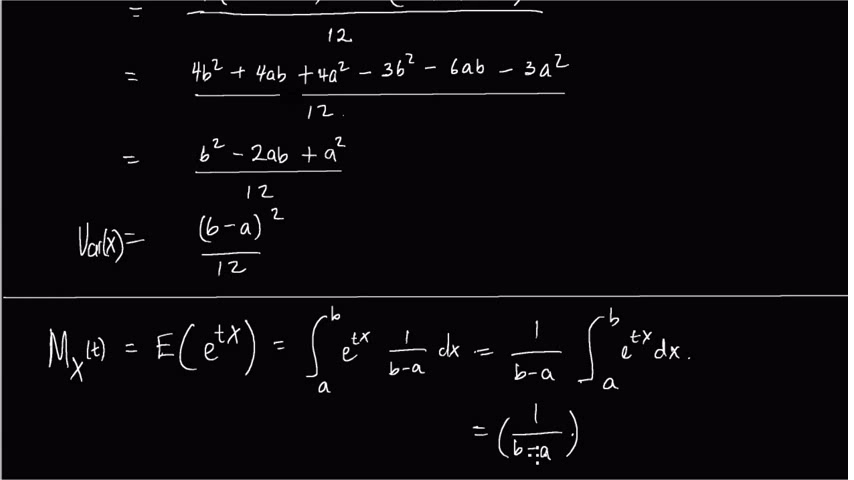 =
12
= 4b² + 4ab + 4a² - 3b² - 6ab - 3a²
12.
= b² - 2ab + a²
12
Var(x) = (b-a)²
12
M_X(t) = E(e^{tX}) = ∫_a^b e^{tx} 1/(b-a) dx = 1/(b-a) ∫_a^b e^{tx} dx.
= (1/(b-a) ·)